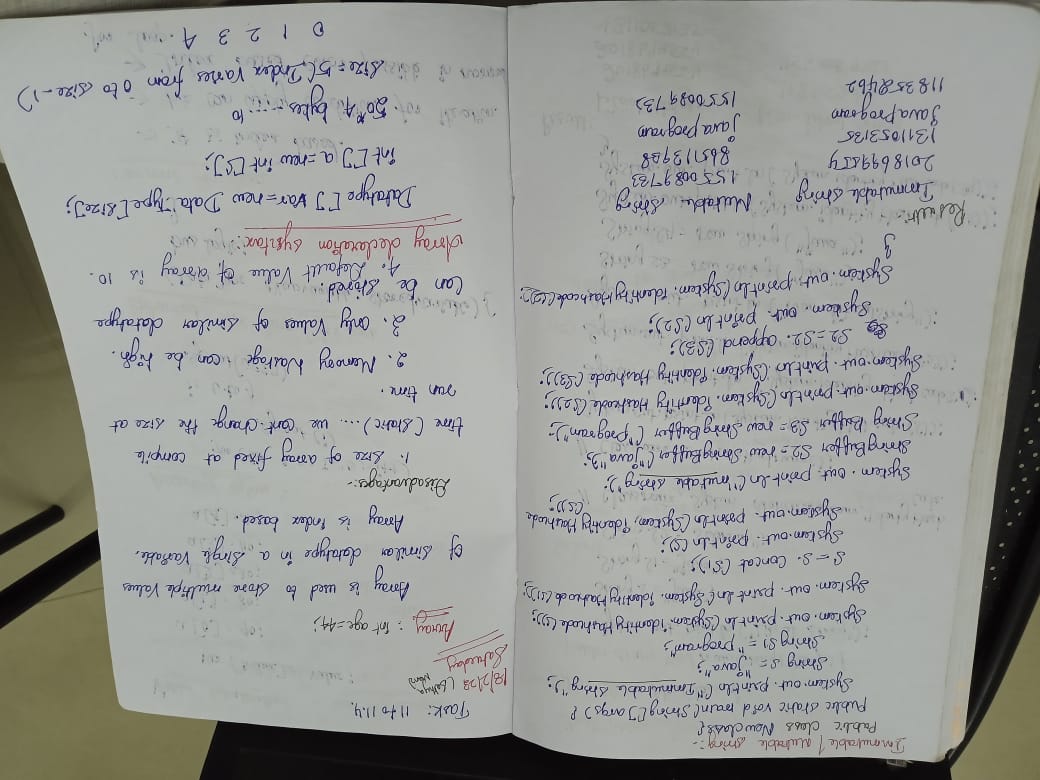 Immutable / Mutable string:-
Public class Newclass{
Public static void main(String[] args) {
System.out.println ("Immutable string");
String S = "java";
String S1 = "program";
System.out.println (System.identityHashcode(S));
System.out.println (System.identityHashcode(S1));
S = S.concat(S1);
System.out.println(S);
System.out.println (System,identityHashcode
(S));
System.out.println ("mutable string");
StringBuffer S2 = new StringBuffer ("java");
String Buffer S3 = new StringBuffer ("program");
System.out.println (System.identityHashcode(S2));
System.out.println (System.identityHashcode (S3));
S2 = S2.append (S3);
System.out.println (S2);
System.out.println (System.identityHashcode(S2));
}
Result:
Immutable string Mutable String
2018699554 1550089733
1311053135 865113938
javaprogram javaprogram
1183582462 1550089733
Task: 11 to 11.4.
18/2/23 (Sathya Mam)
Saturday
Array : int age = 44;
Array is used to store multiple values
of similar datatype in a single variable.
Array is index based.
Disadvantages:-
1. Size of array fixed at compile
time (static).... we can't change the size at
run time.
2. Memory wastage can be high.
3. only values of similar datatype
can be stored.
4. Default value of array is 10.
Array declaration syntax:
Datatype [] var = new Data Type [size];
int [] a = new int [5];
50*4 bytes ..... 10
Size = 5 (Index varies from 0 to size-1)
0 1 2 3 4.